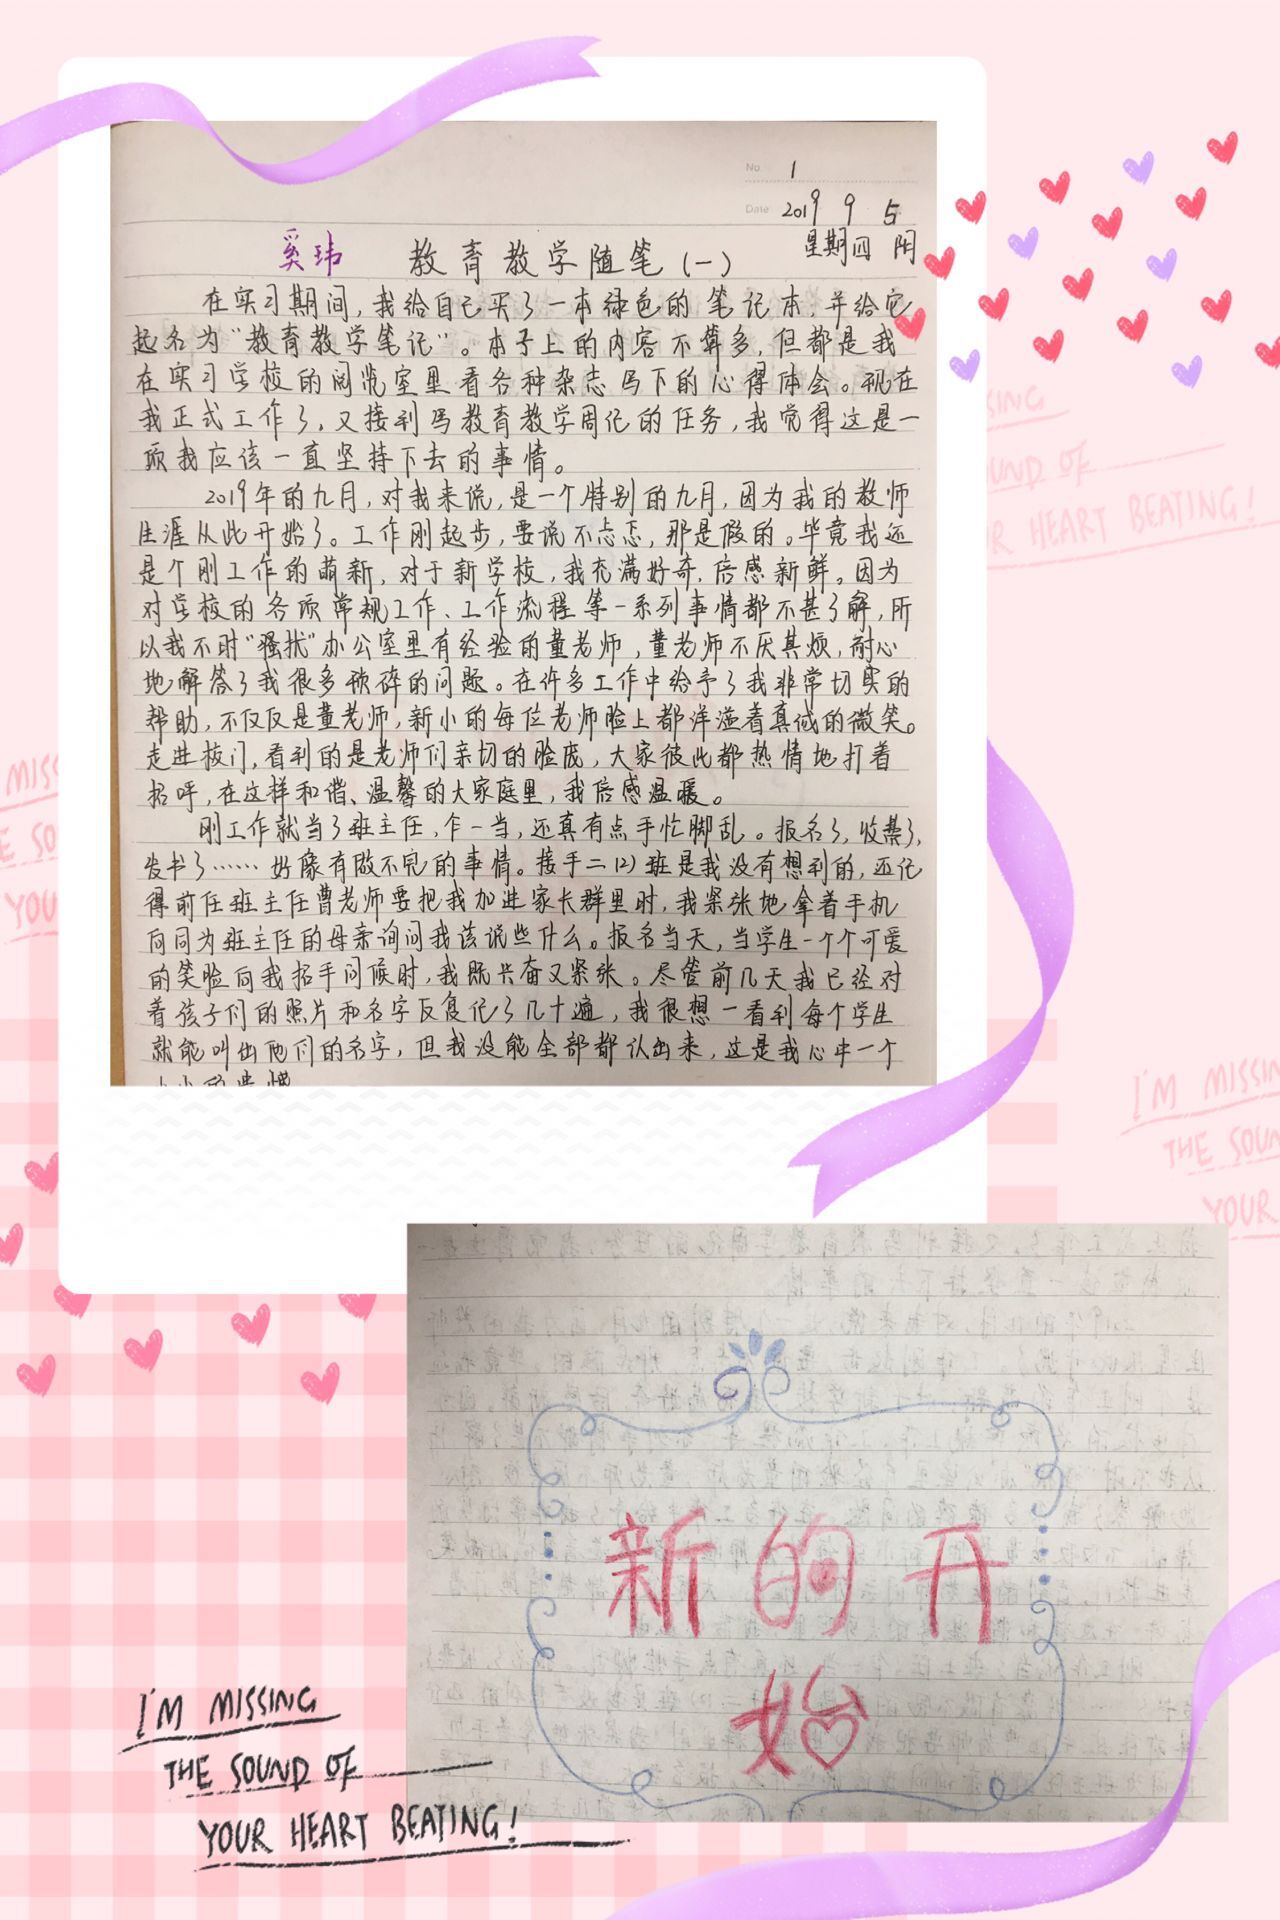 No. 1
Date 2019 9 5
星期四 阴
奚玮 教育教学随笔(一)
在实习期间,我给自己买了一本绿色的笔记本,并给它
起名为“教育教学笔记”。本子上的内容不算多,但都是我
在实习学校的阅览室里看各种杂志写下的心得体会。现在
我正式工作了,又接到写教育教学周记的任务,我觉得这是一
项我应该一直坚持下去的事情。
2019年的九月,对我来说,是一个特别的九月,因为我的教师
生涯从此开始了。工作刚起步,要说不忐忑,那是假的。毕竟我还
是个刚工作的萌新,对于新学校,我充满好奇,倍感新鲜。因为
对学校的各项常规工作、工作流程等一系列事情都不甚了解,所
以我不时“骚扰”办公室里有经验的董老师,董老师不厌其烦,耐心
地解答了我很多琐碎的问题。在许多工作中给予了我非常切实的
帮助,不仅仅是董老师,新小的每位老师脸上都洋溢着真诚的微笑。
走进校门,看到的是老师们亲切的脸庞,大家彼此都热情地打着
招呼,在这样和谐、温馨的大家庭里,我倍感温暖。
刚工作就当了班主任,乍一当,还真有点手忙脚乱。报名了,收费了,
发书了……好像有做不完的事情。接手二(2)班是我没有想到的,还记
得前任班主任曹老师要把我加进家长群里时,我紧张地拿着手机
向同为班主任的母亲询问我该说些什么。报名当天,当学生一个个可爱
的笑脸向我招手问候时,我既兴奋又紧张。尽管前几天我已经对
着孩子们的照片和名字反复记了几十遍,我很想一看到每个学生
就能叫出他们的名字,但我没能全部都认出来,这是我心中一个
新的开
始
I'M MISSING
THE SOUND OF
YOUR HEART BEATING!